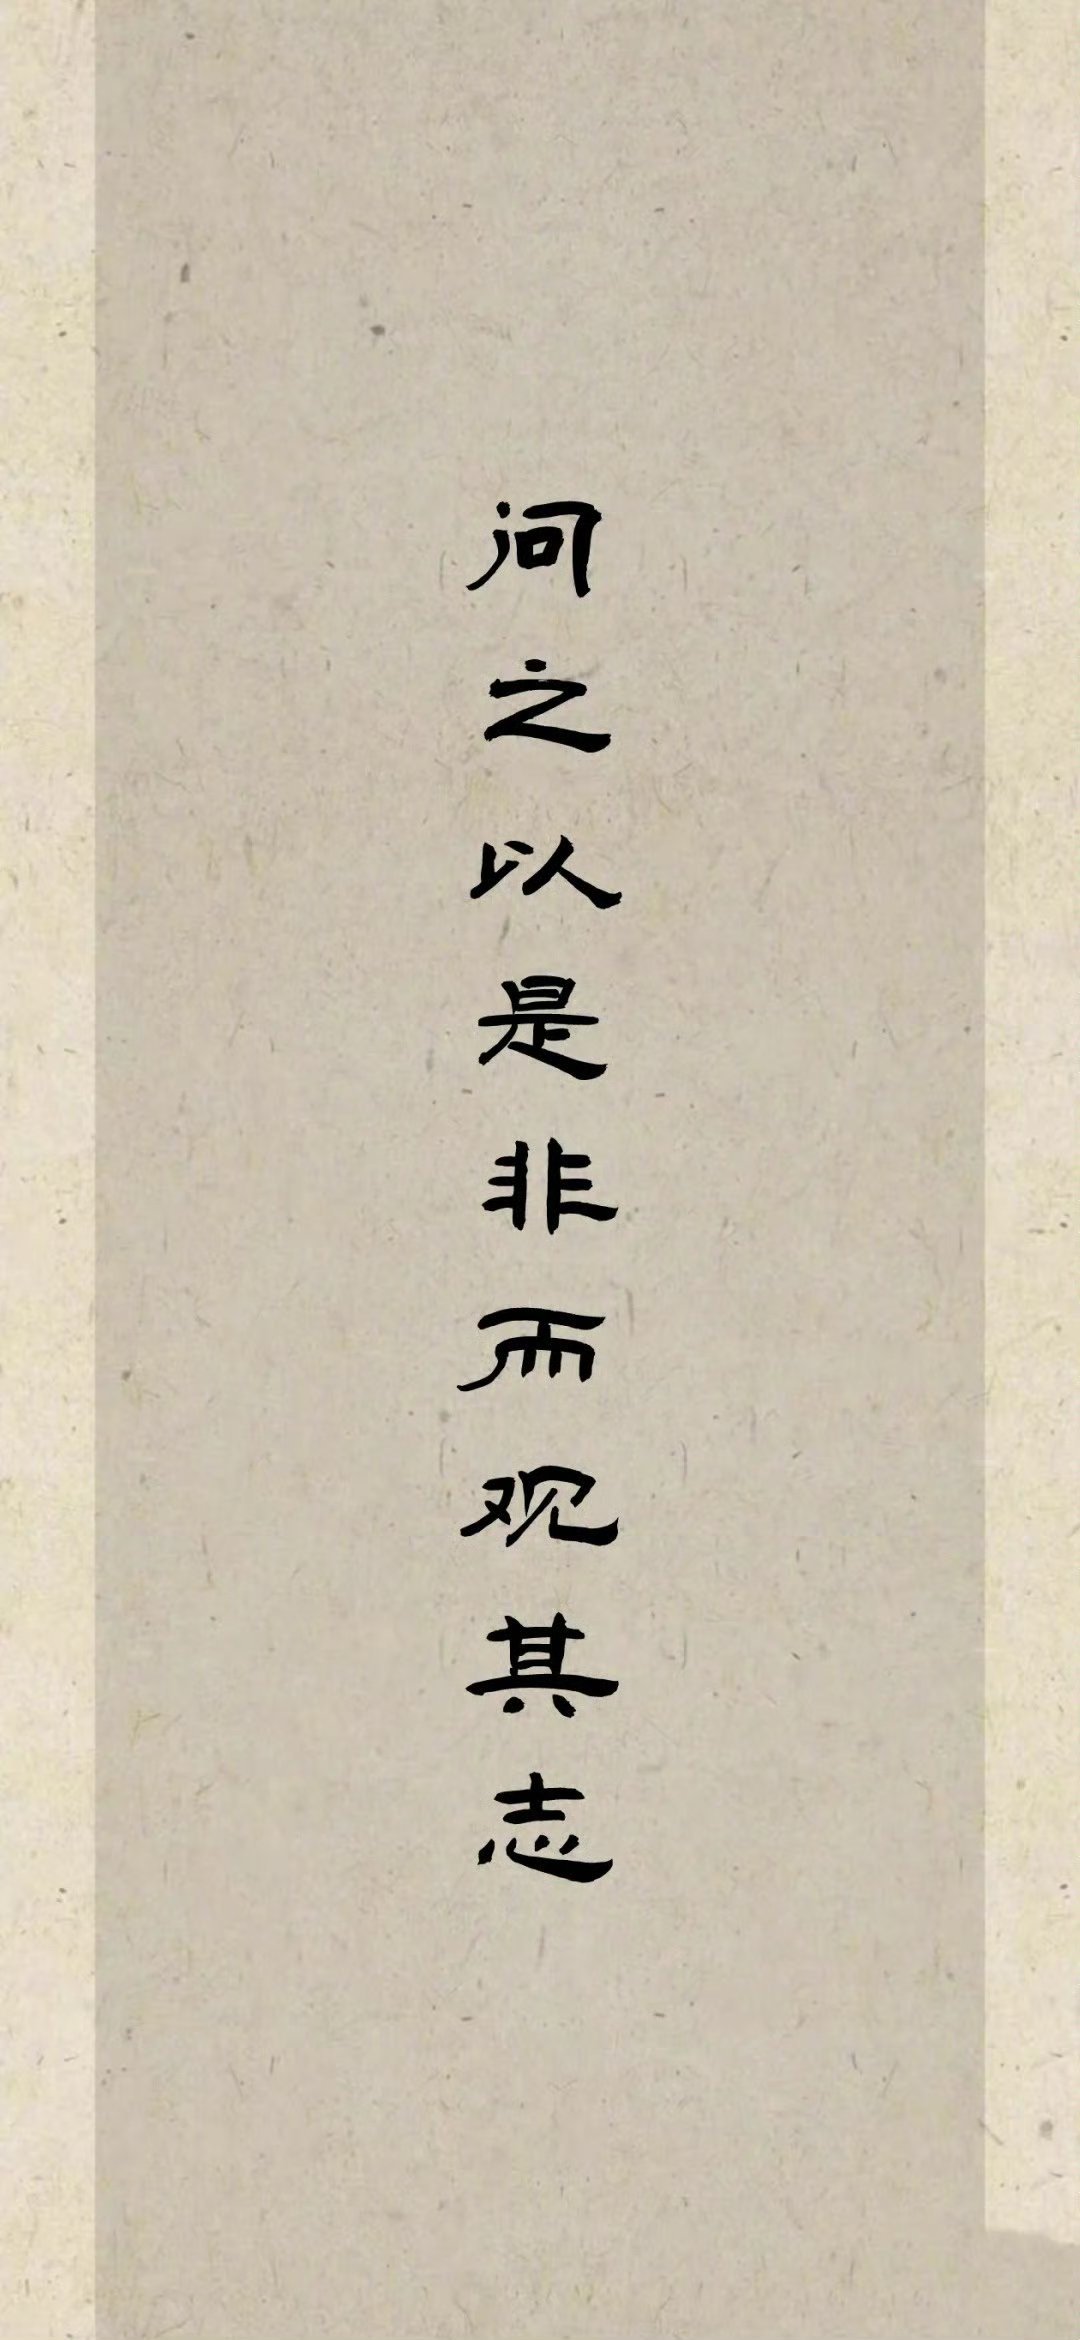 问之以是非而观其志